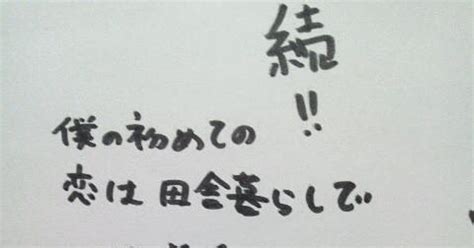 続
!!
僕の初めての
恋は田舎暮らしで